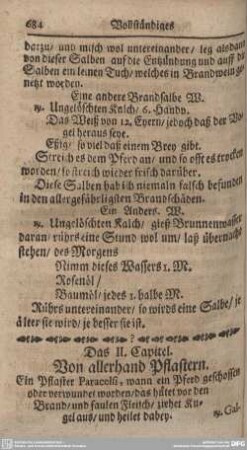 684 Vollständiges
darzu/ und misch wol untereinander/ leg alsdann
von dieser Salben auff die Entzündung und auff die
Salben ein leinen Tuch/ welches in Brandwein ge-
netzt worden.
Eine andere Brandsalbe W.
℞. Ungelöschten Kalch/ 6. Handv.
Das Weiß von 12. Eyern/ jedoch daß der Vo-
gel heraus seye.
Essig/ so viel daß einem Brey gibt.
Streich es dem Pferd an/ und so offt es trocken
worden/ so streich wieder frisch darüber.
Diese Salben hab ich niemaln falsch befunden
in den allergefährligsten Brandschäden.
Ein Anders. W.
℞. Ungelöschten Kalch/ gieß Brunnenwasser
daran/ rührs eine Stund wol um/ laß übernacht
stehen/ des Morgens
Nimm dieses Wassers 1. M.
Rosenöl/
Baumöl/ jedes 1. halbe M.
Rührs untereinander/ so wirds eine Salbe/ je
älter sie wird/ je besser sie ist.
Das II. Capitel.
Von allerhand Pflastern.
Ein Pflaster Paracelsi, wann ein Pferd geschossen
oder verwundet worden/ das hütet vor den
Brand/ und faulen Fleisch/ ziehet Ku-
gel aus/ und heilet dabey.
℞. Gal-